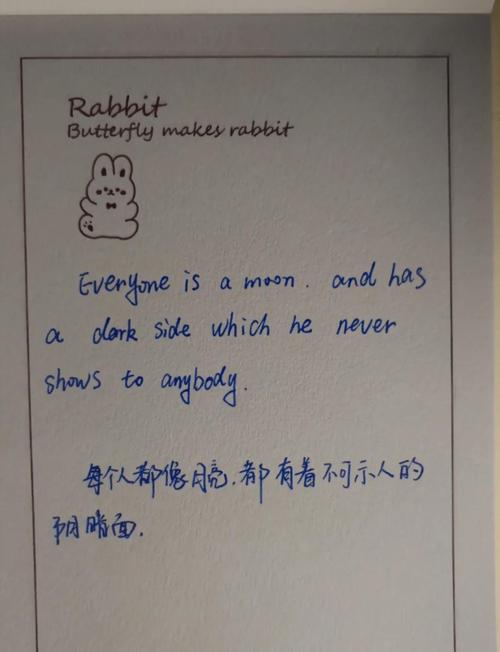 Rabbit
Butterfly makes rabbit
Everyone is a moon. and has
a dark side which he never
shows to anybody.
每个人都像月亮.都有着不可示人的
阴暗面.